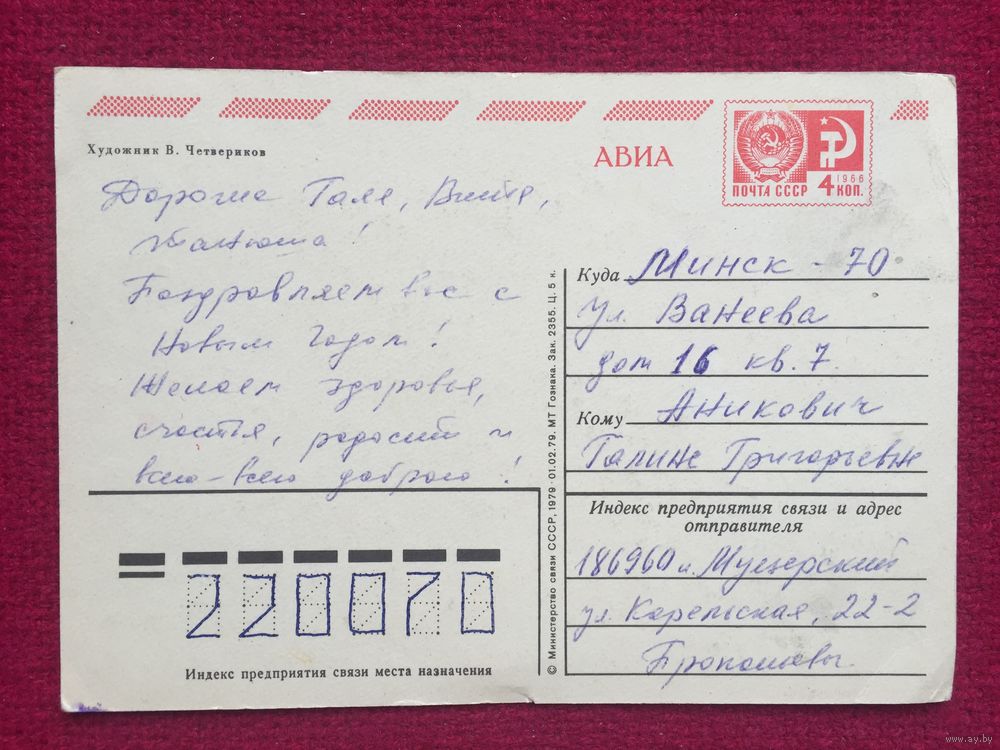 Художник В. Четвериков
АВИА
ПОЧТА СССР
1966
4 КОП.
Дорогие Галя, Витя,
Танюша!
Поздравляем вас с
Новым Годом!
Желаем здоровья,
счастья, радости и
всего-всего доброго!
Куда Минск - 70
ул. Ванеева
дом 16 кв. 7.
Кому Аникович
Галине Григорьевне
Индекс предприятия связи и адрес
отправителя
186960 п. Муезерский
ул. Карельская, 22-2
Прокопьевы
220070
Индекс предприятия связи места назначения
© Министерство связи СССР, 1979 · 01.02.79. МТ Гознака. Зак. 2355. Ц. 5 к.
www.ay.by